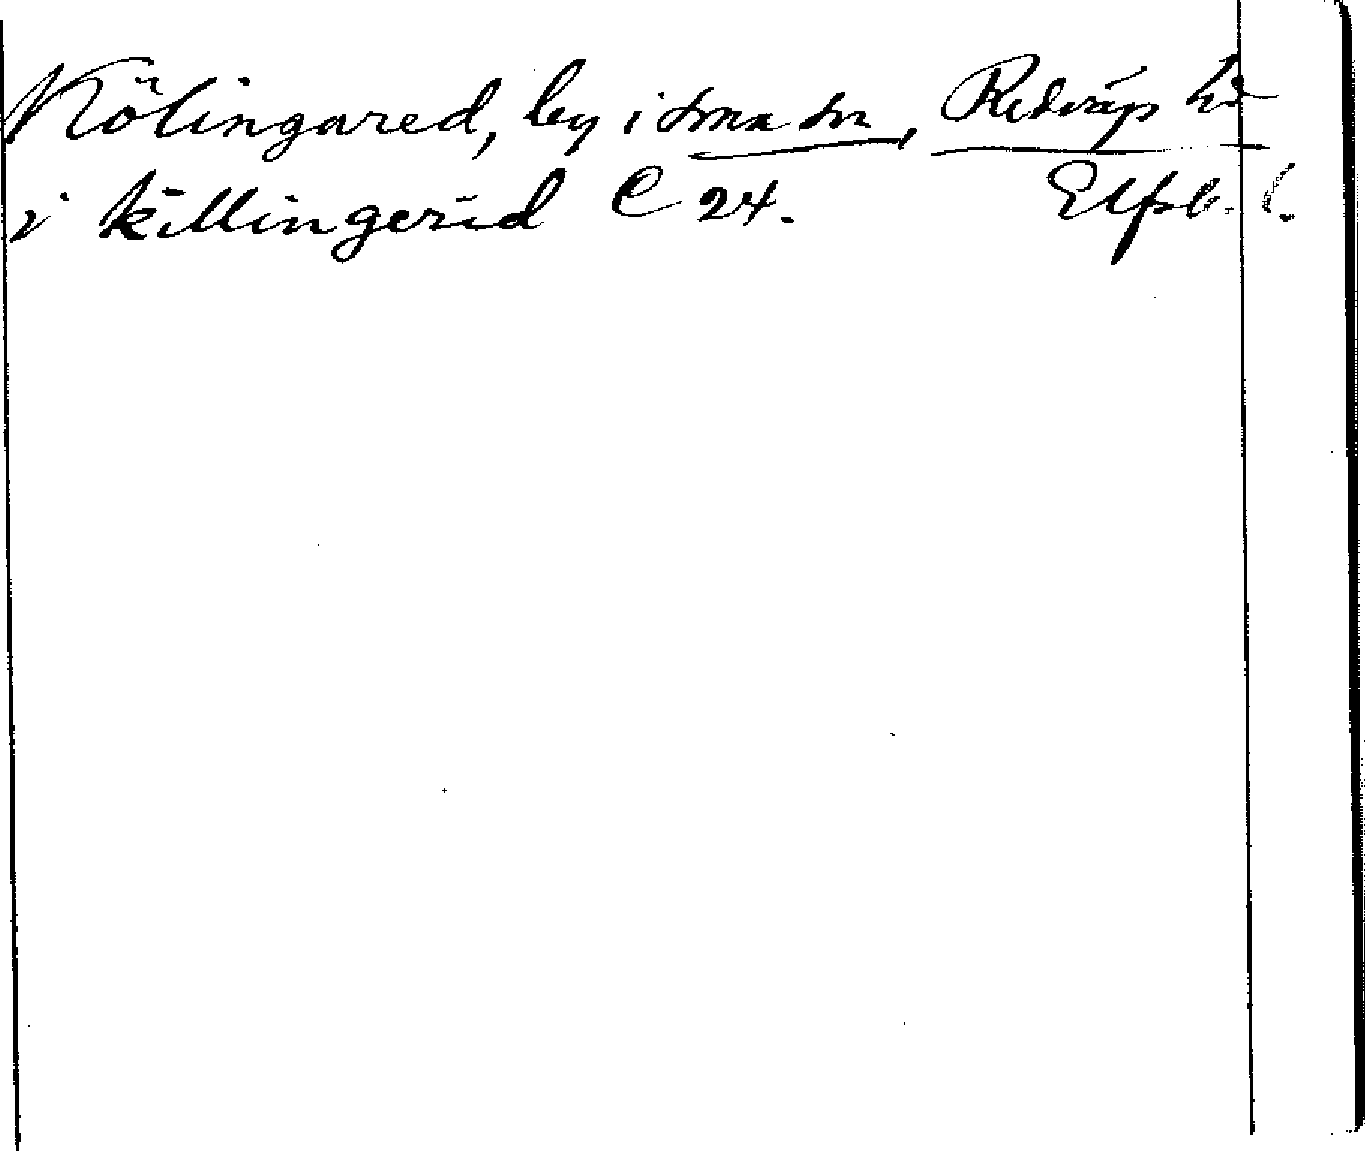 Kölingared, by i sma sn, Redvägs hd
i killingerid C 24. Elfsb. l.